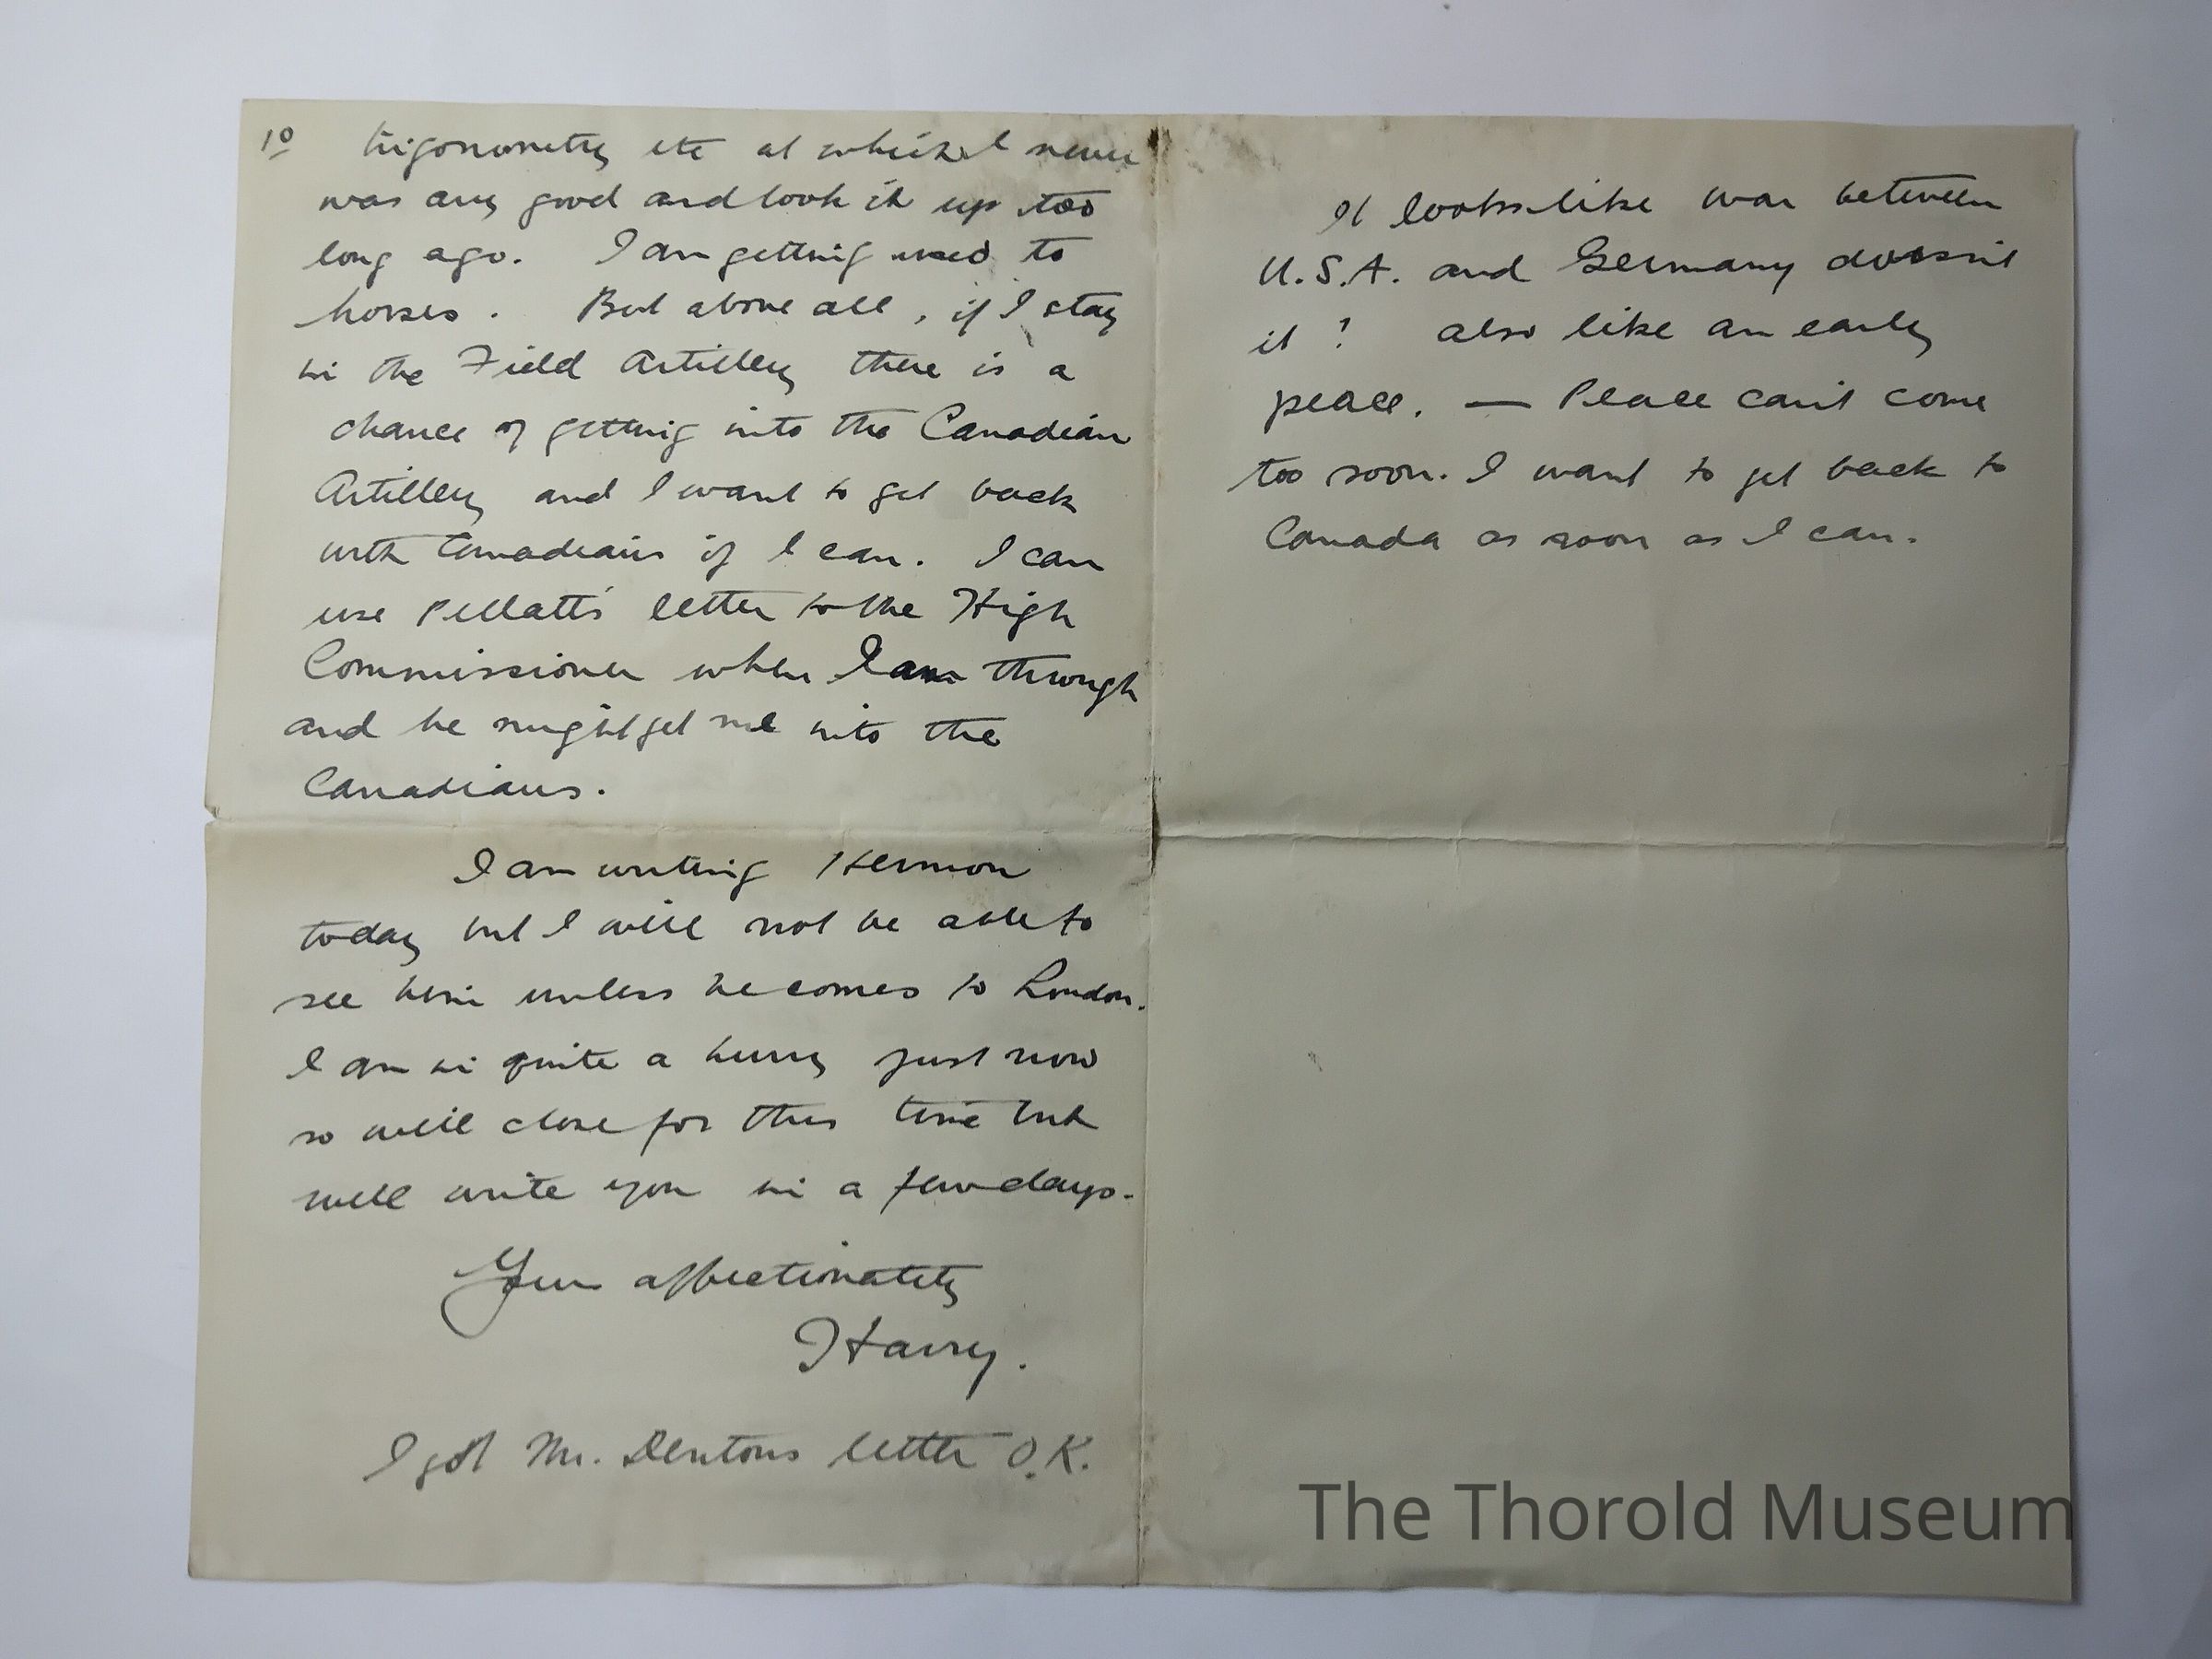 10
trigonometry etc at which I never
was any good and took it up too
long ago. I am getting used to
horses. But above all, if I stay
in the Field Artillery there is a
chance of getting into the Canadian
Artillery and I want to get back
with Canadians if I can. I can
use Pellatt's letter to the High
Commissioner when I am through
and he might get me into the
Canadians.
I am writing Hermon
today but I will not be able to
see him unless he comes to London.
I am in quite a hurry just now
so will close for this time but
will write you in a few days.
Your affectionately
Harry.
I got Mr. Dentons letter O.K.
It looks like war between
U.S.A. and Germany doesn't
it? also like an early
peace. — Peace can't come
too soon. I want to get back to
Canada as soon as I can.
The Thorold Museum